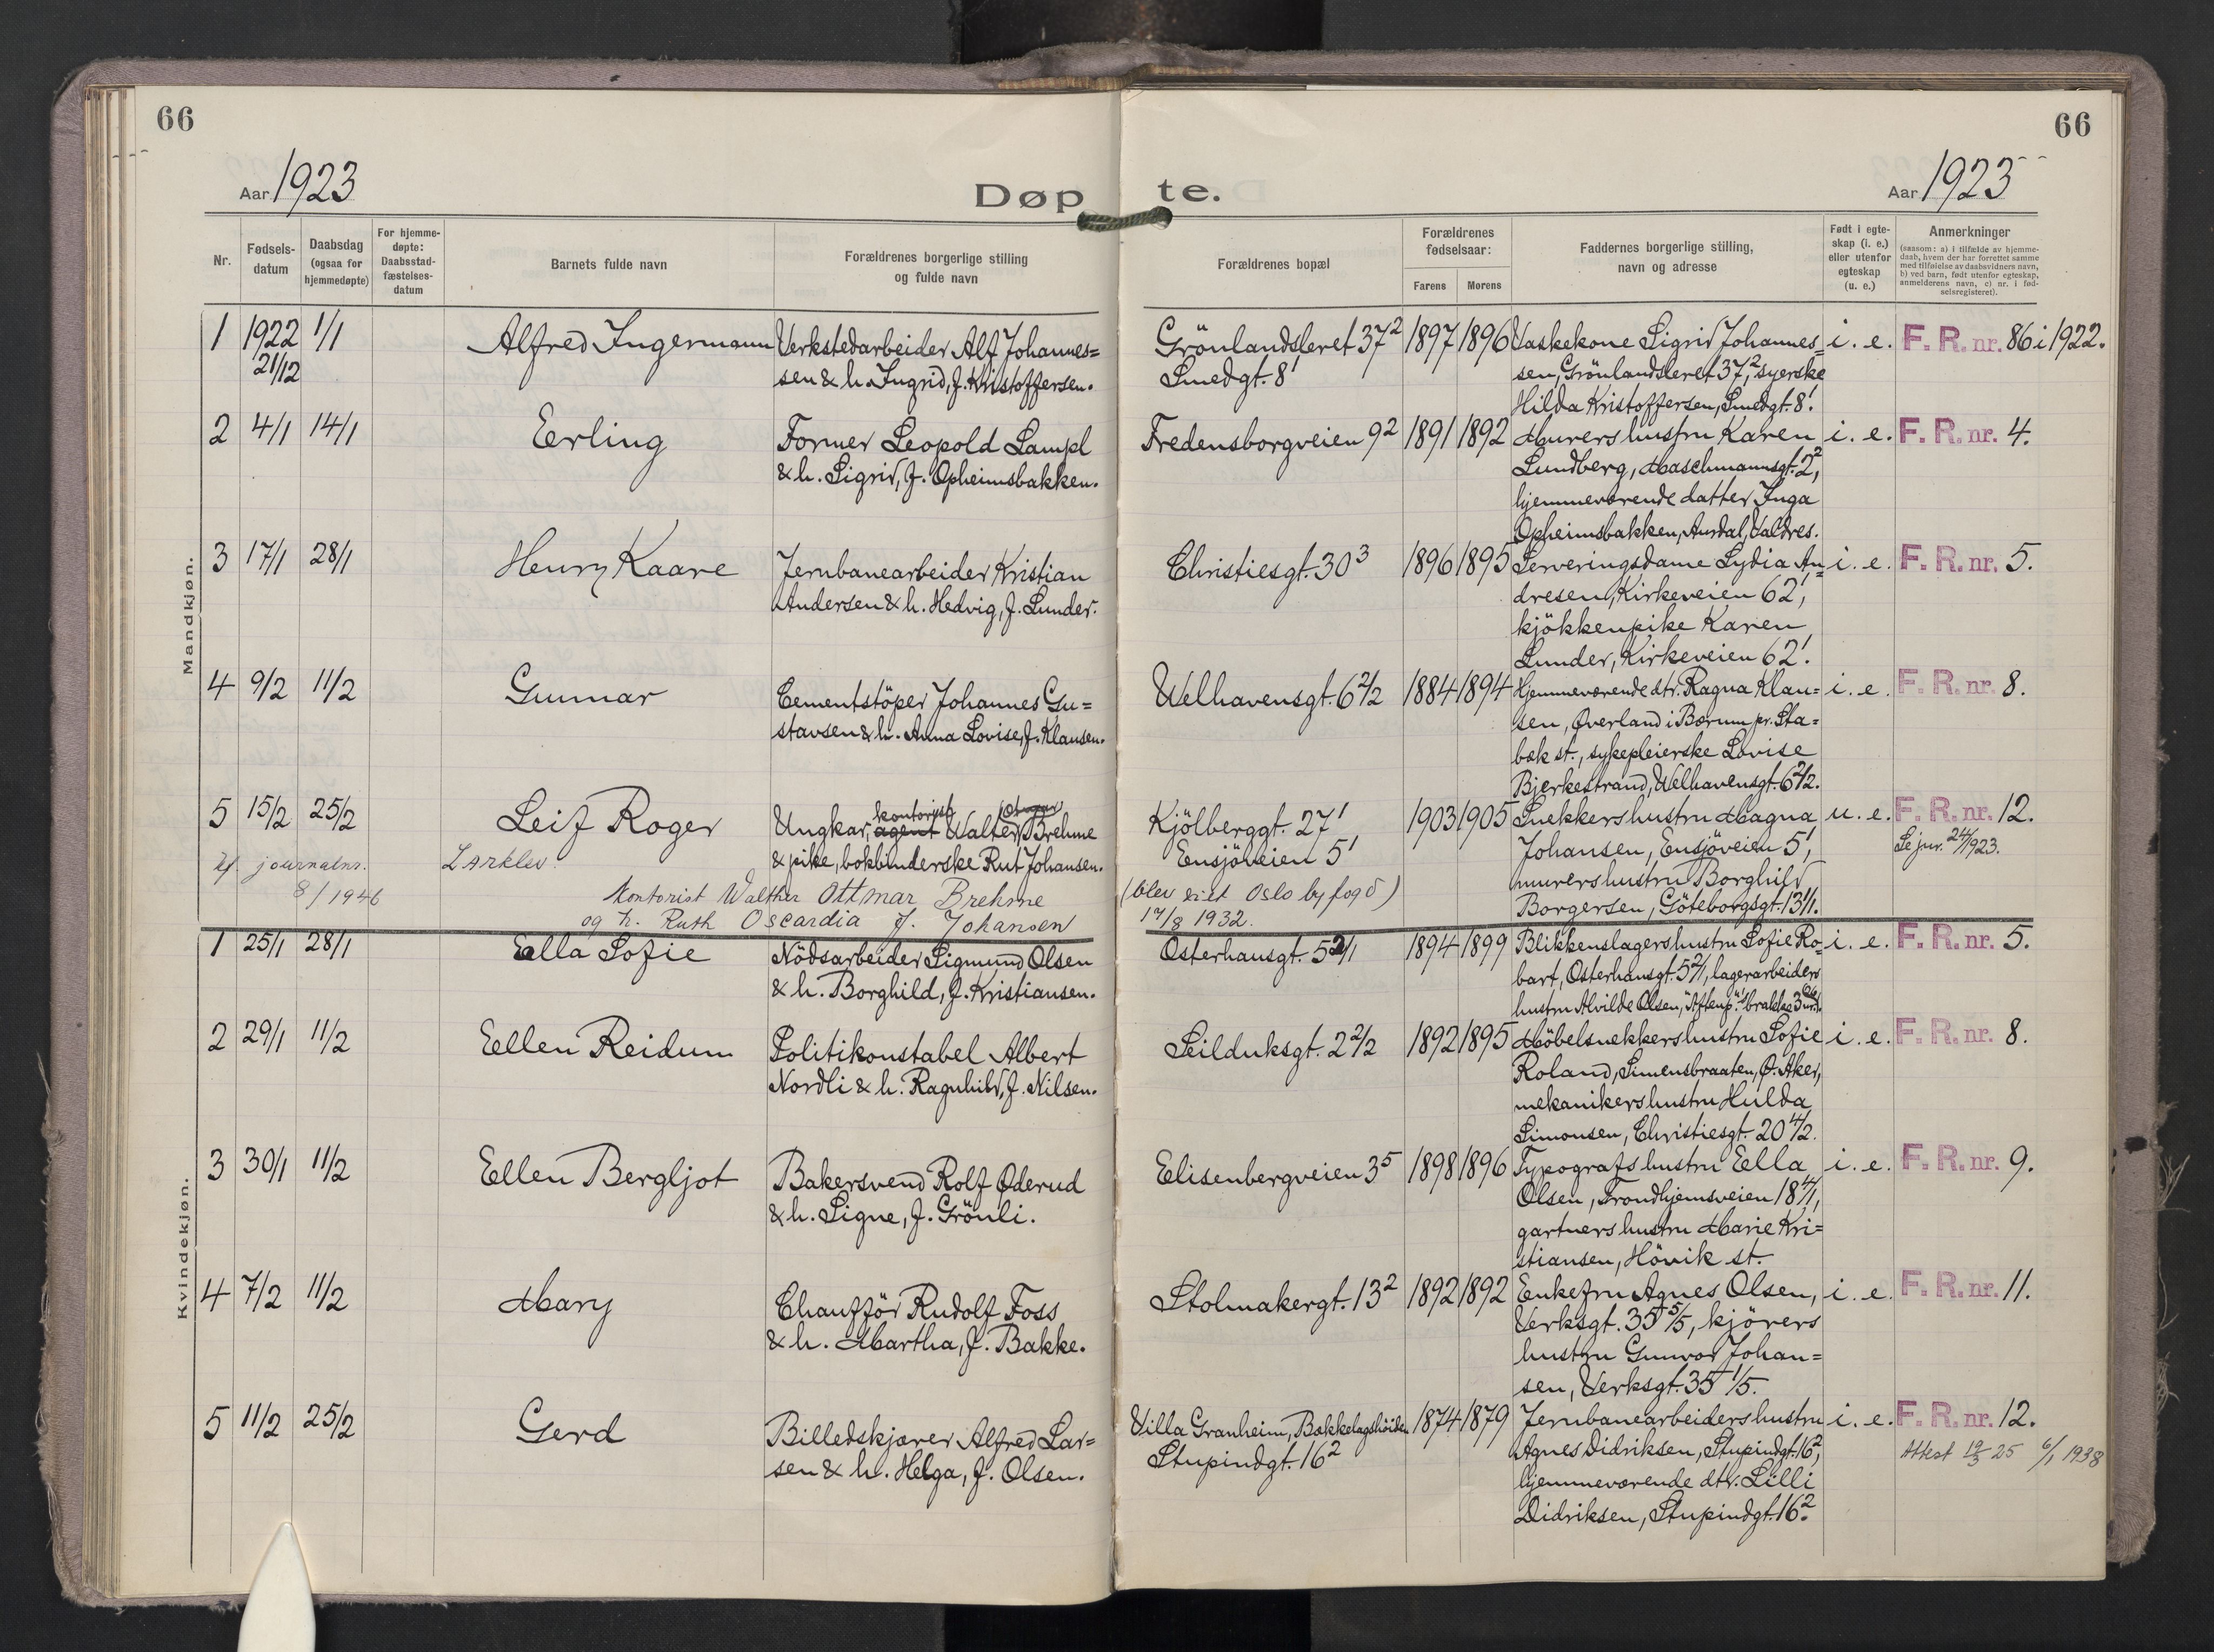 66
66
Aar 1923
Døpte.
Aar 1923
Nr.
Fødsels-
datum
Daabsdag
(ogsaa for
hjemmedøpte)
For hjemme-
døpte:
Daabsstad-
fæstelses-
datum
Barnets fulde navn
Forældrenes borgerlige stilling
og fulde navn
Forældrenes bopæl
Forældrenes
fødselsaar:
Farens
Mørens
Faddernes borgerlige stilling,
navn og adresse
Født i egte-
skap (i. e.)
eller utenfor
egteskap
(u. e.)
Anmerkninger
(saasom: a) i tilfælde av hjemme-
daab, hvem der har forrettet samme
med tilføielse av daabsvidners navn,
b) ved barn, født utenfor egteskap,
anmelderens navn, c) nr. i fød-
selsregisteret).
Mandkjøn.
1 1922 21/12 1/1 Alfred Ingermann
Verkstedarbeider Alf Johannes=
sen & h. Ingrid, f. Kristoffersen.
Grönlandsleret 37²
Smedgt. 8'
1897 1896
Vaskekone Sigrid Johannes=
sen, Grönlandsleret 37², syerske
Hilda Kristoffersen, Smedgt. 8'.
i. e. F. R. nr. 86 i 1922.
2 4/1 14/1 Erling
Former Leopold Lampl
& h. Sigrid, f. Opheimsbakken.
Fredensborgveien 9²
1891 1892
Murers hustru Karen
Lundberg, Maschmannsgt. 2²,
hjemmeværende datter Inga
Opheimsbakken, Aurdal, Valdres.
i. e. F. R. nr. 4.
3 17/1 28/1 Henry Kaare
Jernbanearbeider Kristian
Andersen & h. Hedvig, f. Lunder.
Christiesgt. 30³
1896 1895
Serveringsdame Lydia An=
dresen, Kirkeveien 62',
kjökkenpike Karen
Lunder, Kirkeveien 62'.
i. e. F. R. nr. 5.
4 9/2 11/2 Gunnar
Cementstöper Johannes Gu=
stavsen & h. Anna Lovise, f. Klausen.
Welhavensgt. 6 2/2
1884 1894
Hjemmeværende dtr. Ragna Klau=
sen, Øverland i Bærum pr. Sta=
bæk st., sykepleierske Lovise
Bjerkestrand, Welhavensgt. 6 2/2.
i. e. F. R. nr. 8.
5 15/2 25/2 Leif Roger
kontorist
Ungkar, agent Walter Brehme
& pike, bokbinderske Rut Johansen.
Kjölberggt. 27'
Ensjöveien 5'
1903 1905
Snekkers hustru Magna
Johansen, Ensjöveien 5',
murers hustru Borghild
Borgersen, Göteborgsgt. 13/1.
u. e. F. R. nr. 12.
Se jnr. 24/1923.
journalnr.
8/1946
Kontorist Walther Ottmar Brehme
og h. Ruth Oscardia f. Johansen
(blev viet Oslo byfogd)
17/8 1932.
Kvindekjøn.
1 25/1 28/1 Ella Sofie
Nödsarbeider Sigmund Olsen
& h. Borghild, f. Kristiansen.
Osterhausgt. 5 2/1
1894 1899
Blikkenslagers hustru Sofie Ro=
bart, Osterhausgt. 5 2/1, lagerarbeiders
hustru Alvilde Olsen, "Aftenp."s brakke 3
i. e. F. R. nr. 5.
2 29/1 11/2 Ellen Reidun
Politikonstabel Albert
Nordli & h. Ragnhild, f. Nilsen.
Seilduksgt. 2 2/2
1892 1895
Möbelsnekkers hustru Sofie
Roland, Simensbraaten, Ø. Aker,
mekanikers hustru Hulda
Simonsen, Christiesgt. 20 4/2.
i. e. F. R. nr. 8.
3 30/1 11/2 Ellen Bergljot
Bakersvend Rolf Øderud
& h. Signe, f. Grönli.
Elisenbergveien 3⁵
1898 1896
Typografs hustru Ella
Olsen, Trondhjemsveien 18 4/1,
gartners hustru Marie Kri=
stiansen, Hövik st.
i. e. F. R. nr. 9.
4 7/2 11/2 Mary
Chaufför Rudolf Foss
& h. Martha, f. Bakke.
Stolmakergt. 13²
1892 1892
Enkefru Agnes Olsen,
Verksgt. 35 5/5, kjörers
hustru Gunvor Johan=
sen, Verksgt. 35 1/5.
i. e. F. R. nr. 11.
5 11/2 25/2 Gerd
Billedskjærer Alfred Lar=
sen & h. Helga, f. Olsen.
Villa Granheim, Bækkelagshöiden
Stupindgt. 16²
1874 1879
Jernbanearbeiders hustru
Agnes Didriksen, Stupindgt. 16²,
hjemmeværende dtr. Lilli
Didriksen, Stupindgt. 16².
i. e. F. R. nr. 12.
Attest 19/3 25 6/1 1938